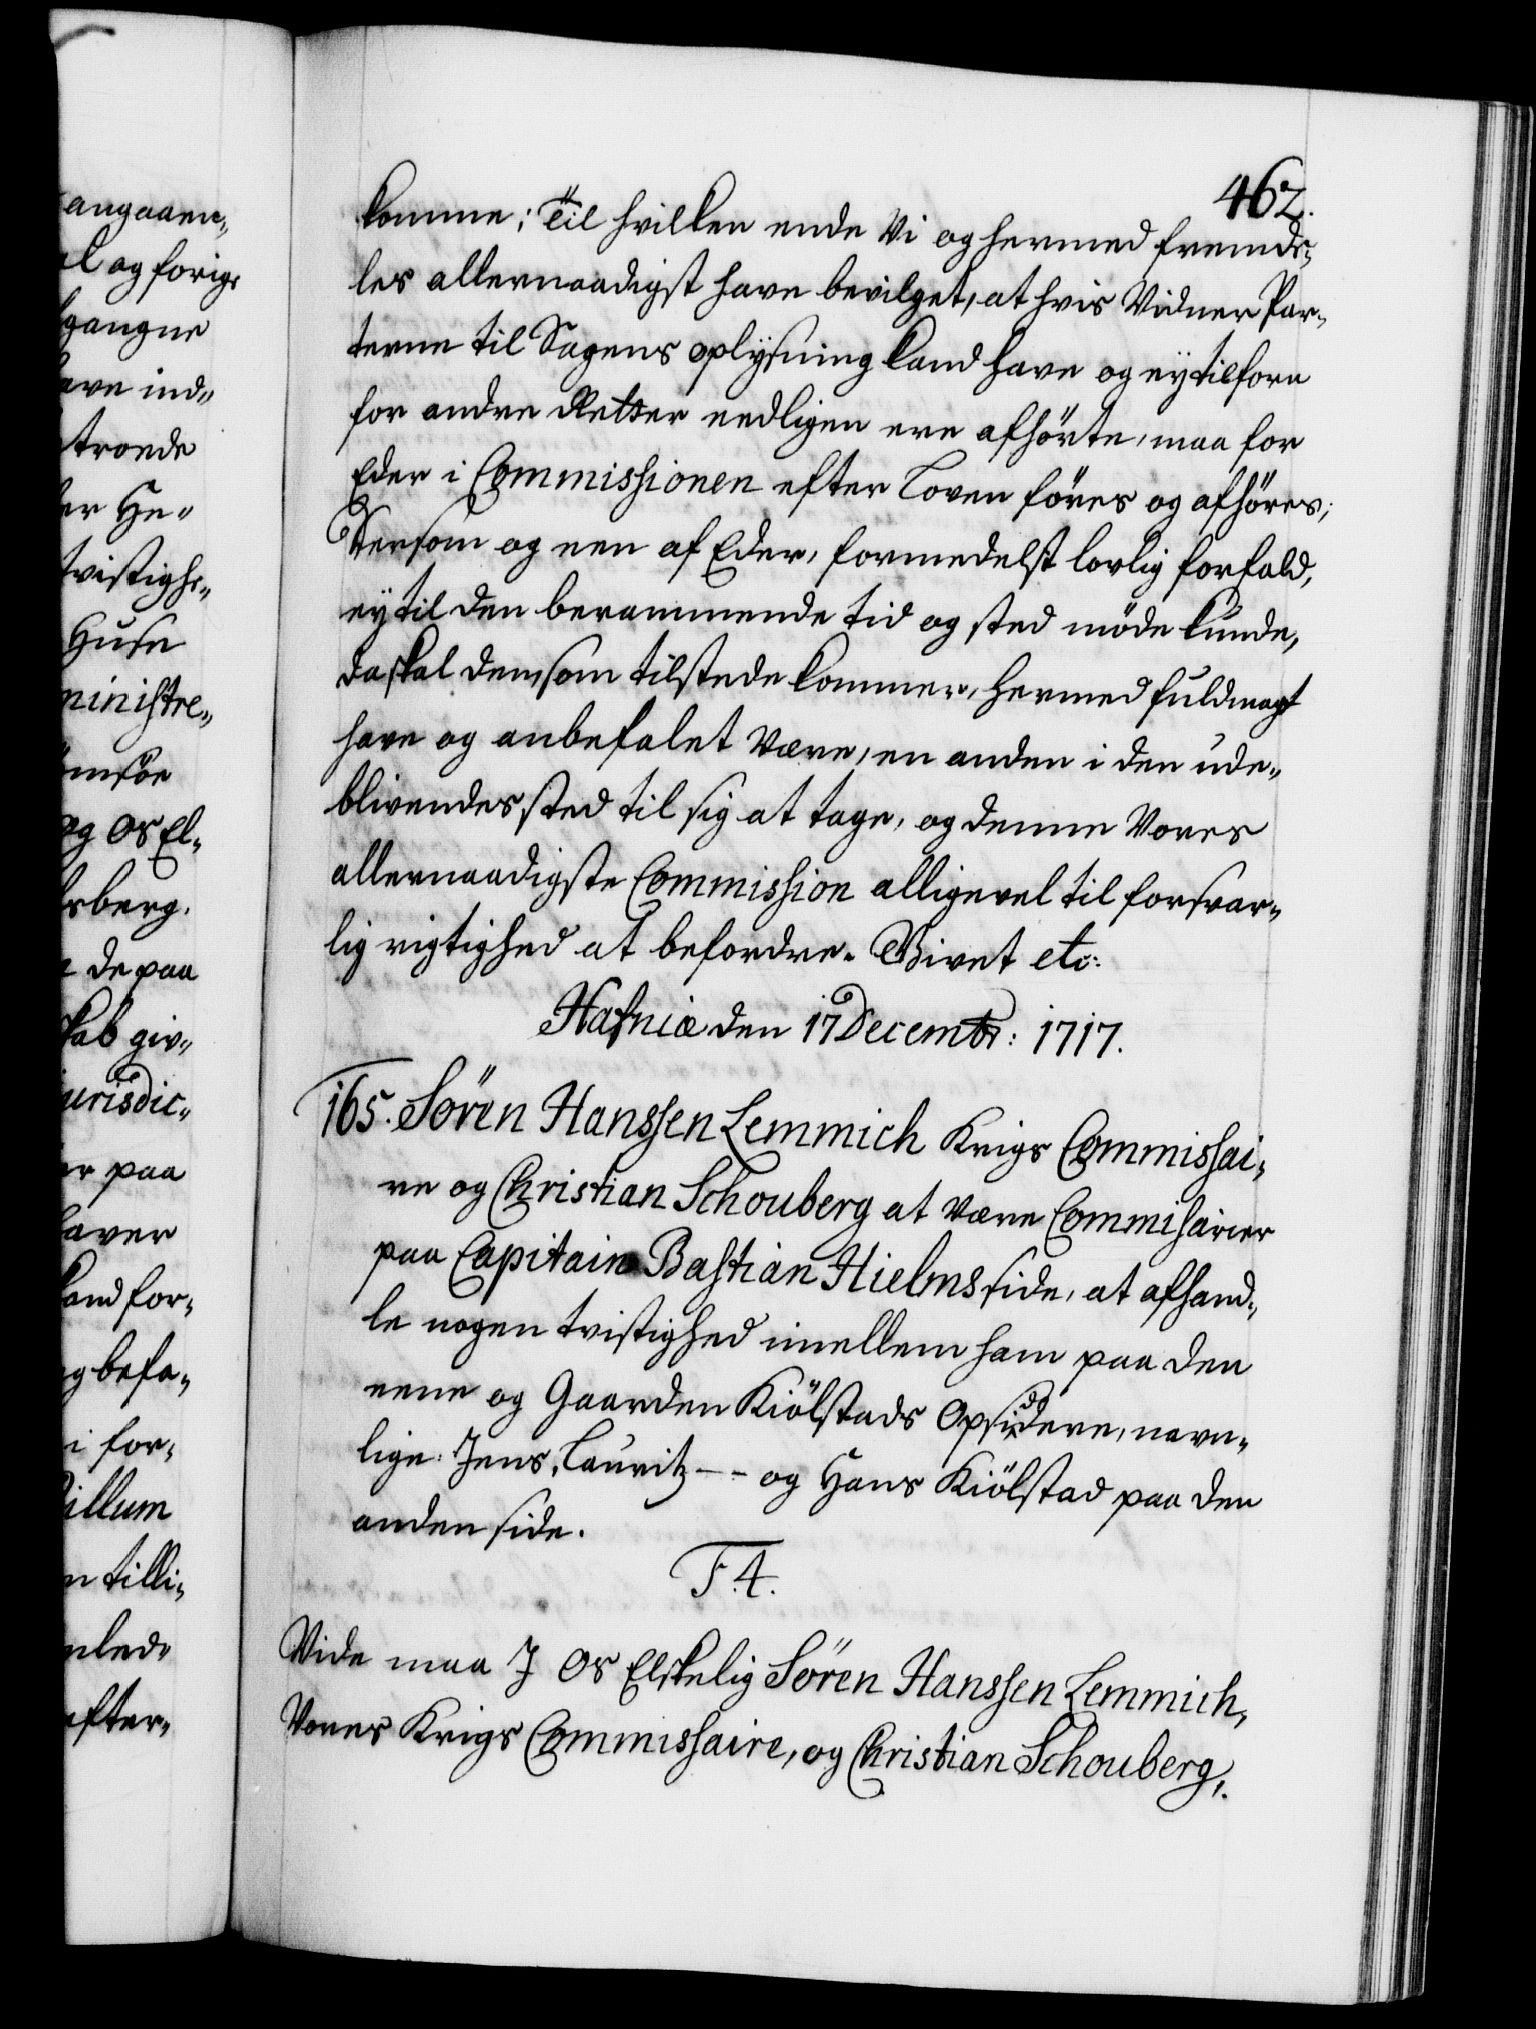 angaaen„
l og forige
gangne
ave ind„
troede
er He„
tvistighe„
Huse
ministre„
ömsöe
og Os El„
rsberg.
e de paa
kab giv„
jurisdic„
er paa
haver
kand for„
g befa„
i for„
illum
n tilli„
nled„
efter„
462.
komme; Til hvilken ende Vi og hermed fremde„
les allernaadigst have bevilget, at hvis Vidner Par„
terne til Sagens oplysning kand have og ey tilforn
for andre Retter eedligen ere afhörte, maa for
Eder i Commissionen efter Loven föres og afhöres;
Dersom og een af Eder, formedelst lovlig forfald,
ey til den berammende tid og sted möde kunde,
da skal den, som tilstede kommer, hermed fuldmagt
have og anbefalet være, en anden i den ude„
blivendes sted til sig at tage, og denne Vores
allernaadigste Commission alligevel til forsvar„
lig rigtighed at befordre. Givet etc:
Hafniæ den 17 Decembr: 1717.
165. Sören Hanssen Lemmich Krigs Commissai„
re og Christian Schouberg at være Commissairer
paa Capitain Bastian Hielms side, at afhand„
le nogen tvistighed imellem ham paa den
eene og Gaarden Kiölstads Opsiddere, navn„
lige: Jens, Lauritz -- og Hans Kiölstad paa den
anden side.
F. 4.
Vide maa I Os Elskelig Sören Hanssen Lemmich,
Vores Krigs Commissaire, og Christian Schouberg,